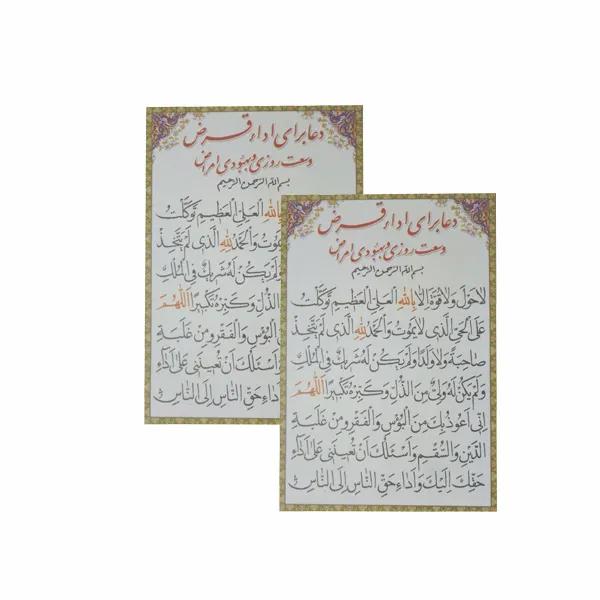 دعا برای اداء قرض
وسعت روزی و بهبودی امراض
بسم الله الرحمن الرحیم
بِاللهِ الْعَلِیِّ الْعَظیمِ تَوَکَّلْتُ
یَمُوتُ وَالْحَمْدُ لِلهِ الَّذی لَمْ یَتَّخِذْ
وَلَمْ یَکُنْ لَهُ شَریکٌ فِی الْمُلْکِ
الذُّلِّ وَکَبِّرْهُ تَکْبیراً اَللّهُمَّ
الْبُؤْسِ وَالْفَقْرِ وَمِنْ غَلَبَةِ
وَاَسْئَلُکَ اَنْ تُعینَنی عَلی اَدآءِ
وَاَداءِ حَقِّ النّاسِ اِلَی النّاسِ
دعا برای اداء قرض
وسعت روزی و بهبودی امراض
بسم الله الرحمن الرحیم
لاحَوْلَ وَلاقُوَّةَ اِلّا بِاللهِ الْعَلِیِّ الْعَظیمِ تَوَکَّلْتُ
عَلَی الْحَیِّ الَّذی لایَمُوتُ وَالْحَمْدُ لِلهِ الَّذی لَمْ یَتَّخِذْ
صاحِبَةً وَلا وَلَداً وَلَمْ یَکُنْ لَهُ شَریکٌ فِی الْمُلْکِ
وَلَمْ یَکُنْ لَهُ وَلِیٌّ مِنَ الذُّلِّ وَکَبِّرْهُ تَکْبیراً اَللّهُمَّ
اِنّی اَعُوذُ بِکَ مِنَ الْبُؤْسِ وَالْفَقْرِ وَمِنْ غَلَبَةِ
الدَّیْنِ وَالسُّقْمِ وَاَسْئَلُکَ اَنْ تُعینَنی عَلی اَدآءِ
حَقِّکَ اِلَیْکَ وَاَداءِ حَقِّ النّاسِ اِلَی النّاسِ